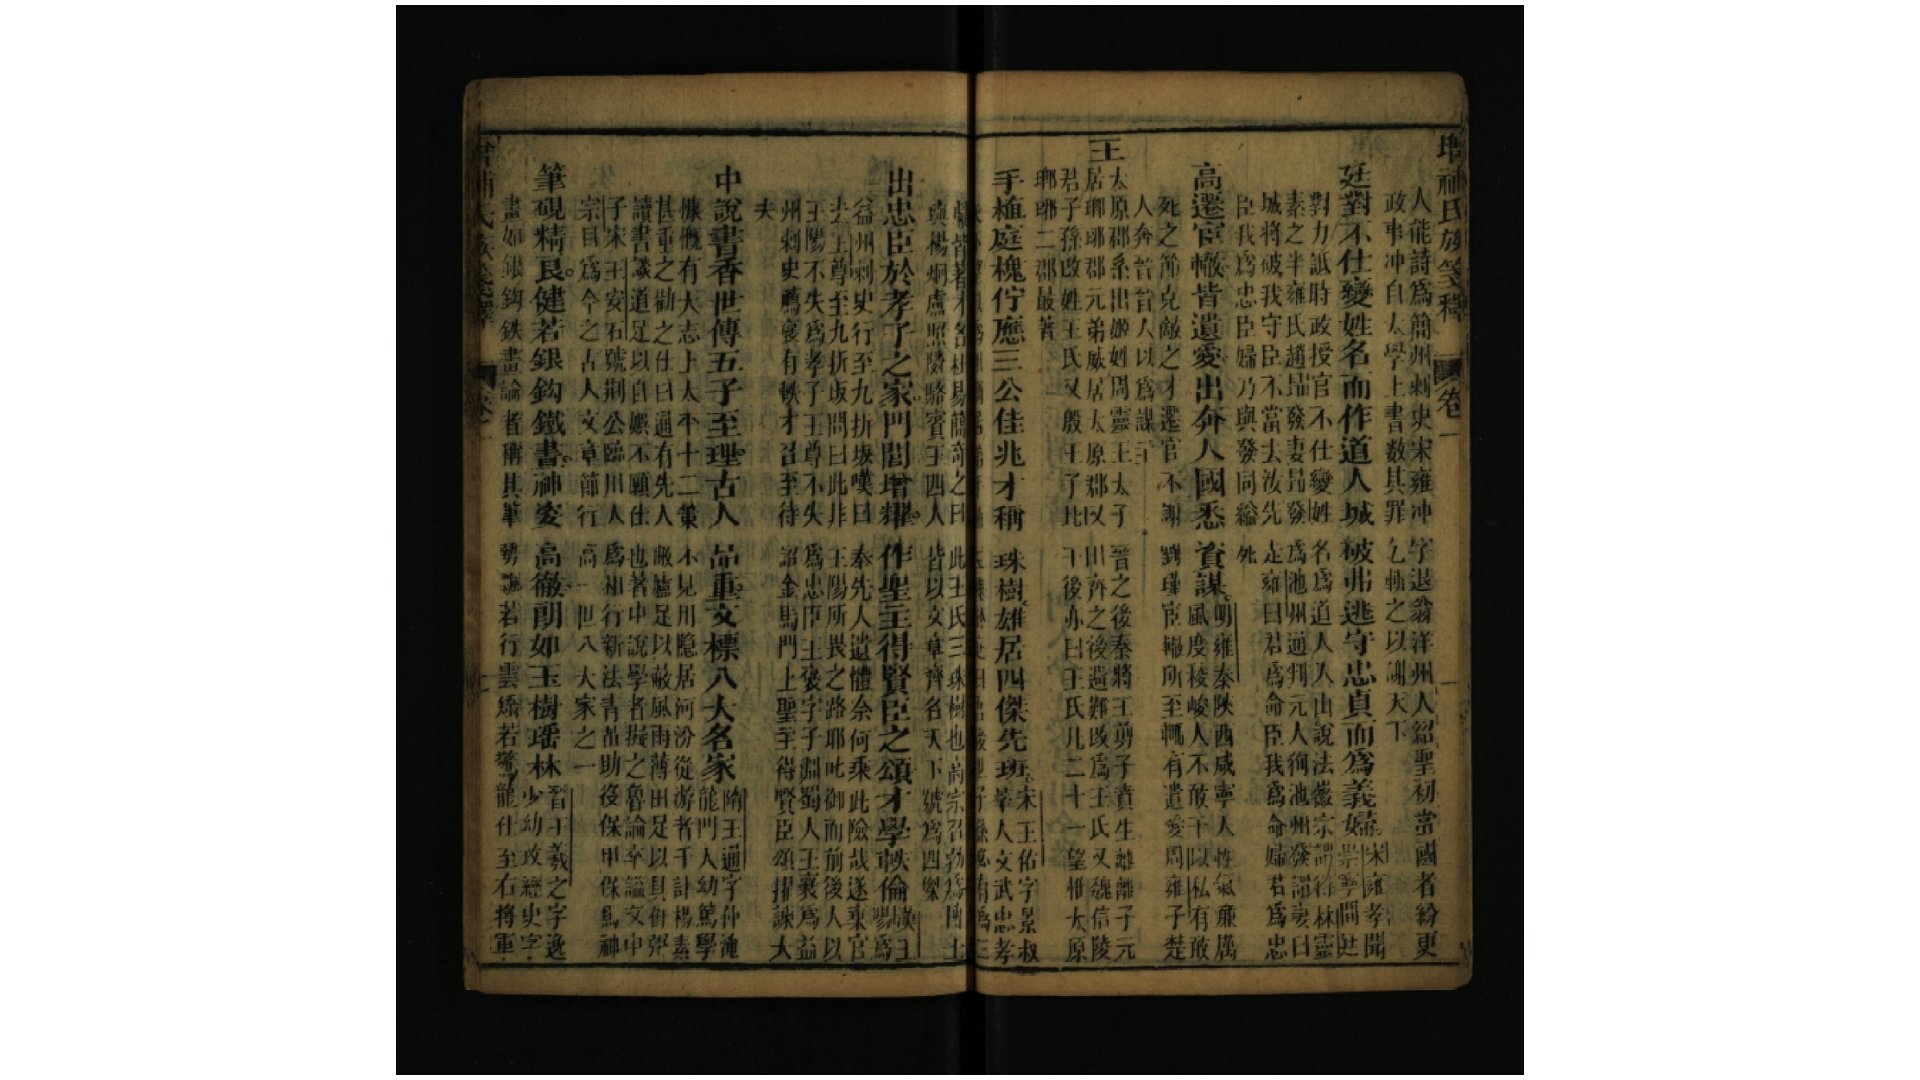 增補氏族箋釋 卷一
人能詩爲簡州刺史宋雍沖字退翁洋州人紹聖初當國者紛更
政事沖自太學上書数其罪乞斬之以謝天下
廷對不仕變姓名而作道人城破弗逃守忠貞而爲義婦宋雍孝聞
崇寧間廷
對力詆時政授官不仕變姓名爲道人入山說法徽宗謂徐林靈
素之半雍氏趙昂發妻昂發爲池州通判元人徇池州發謂妻曰
城將破我守臣不當去汝先走雍曰君爲命臣我爲命婦君爲忠
臣我爲忠臣婦乃與發同縊死
高遷官轍皆遺愛出奔人國悉資謀明雍泰陝西咸寧人性氣廉厲
風度稜峻人不敢干以私有敢
死之節克敵之才遷官不謝劉瑾宦轍所至輒有遺愛周雍子楚
人奔晉晉人以爲謀主
王
太原郡系出姬姓周靈王太子晉之後秦將王剪子賁生離離子元
居瑯琊郡元弟威居太原郡又田齊之後避難改爲王氏又魏信陵
君子孫改姓王氏又殷王子比干後亦曰王氏凡二十一望惟太原
瑯琊二郡最著
手植庭槐佇應三公佳兆才稱珠樹雄居四傑先班宋王佑字景叔
舉人文武忠孝
此王氏三珠樹也高宗召勃爲博士
與楊炯盧照隣駱賓王四人皆以文章齊名天下號爲四傑
出忠臣於孝子之家門閭增耀作聖主得賢臣之頌才學軼倫漢王
陽爲
益州刺史行至九折坂嘆曰奉先人遺體奈何乘此險哉遂棄官
去王尊至九折坂問曰此非王陽所畏之路耶叱御而前後人以
王陽不失爲孝子王尊不失爲忠臣王褒字子淵蜀人王襄爲益
州刺史薦褒有軼才召至待詔金馬門上聖主得賢臣頌擢諫大
夫
中說書香世傳五子至理古人品重文標八大名家隋王通字仲淹
龍門人幼篤學
慷慨有大志上太平十二策不見用隐居河汾從游者千計楊素
甚重之勸之仕曰通有先人敝廬足以蔽風雨薄田足以具饘粥
讀書談道足以自娛不願仕也著中說學者擬之魯論卒謚文中
子宋王安石號荆公臨川人爲相行新法青苗助役保甲保馬神
宗目爲今之古人文章節行高一世八大家之一
筆硯精良健若銀鈎鐵畫神姿高徹朗如玉樹瑶林晉王羲之字逸
少幼攻繪史字
畫如銀鈎鉄畫論者稱其筆勢飄若行雲矯若驚龍仕至右將軍